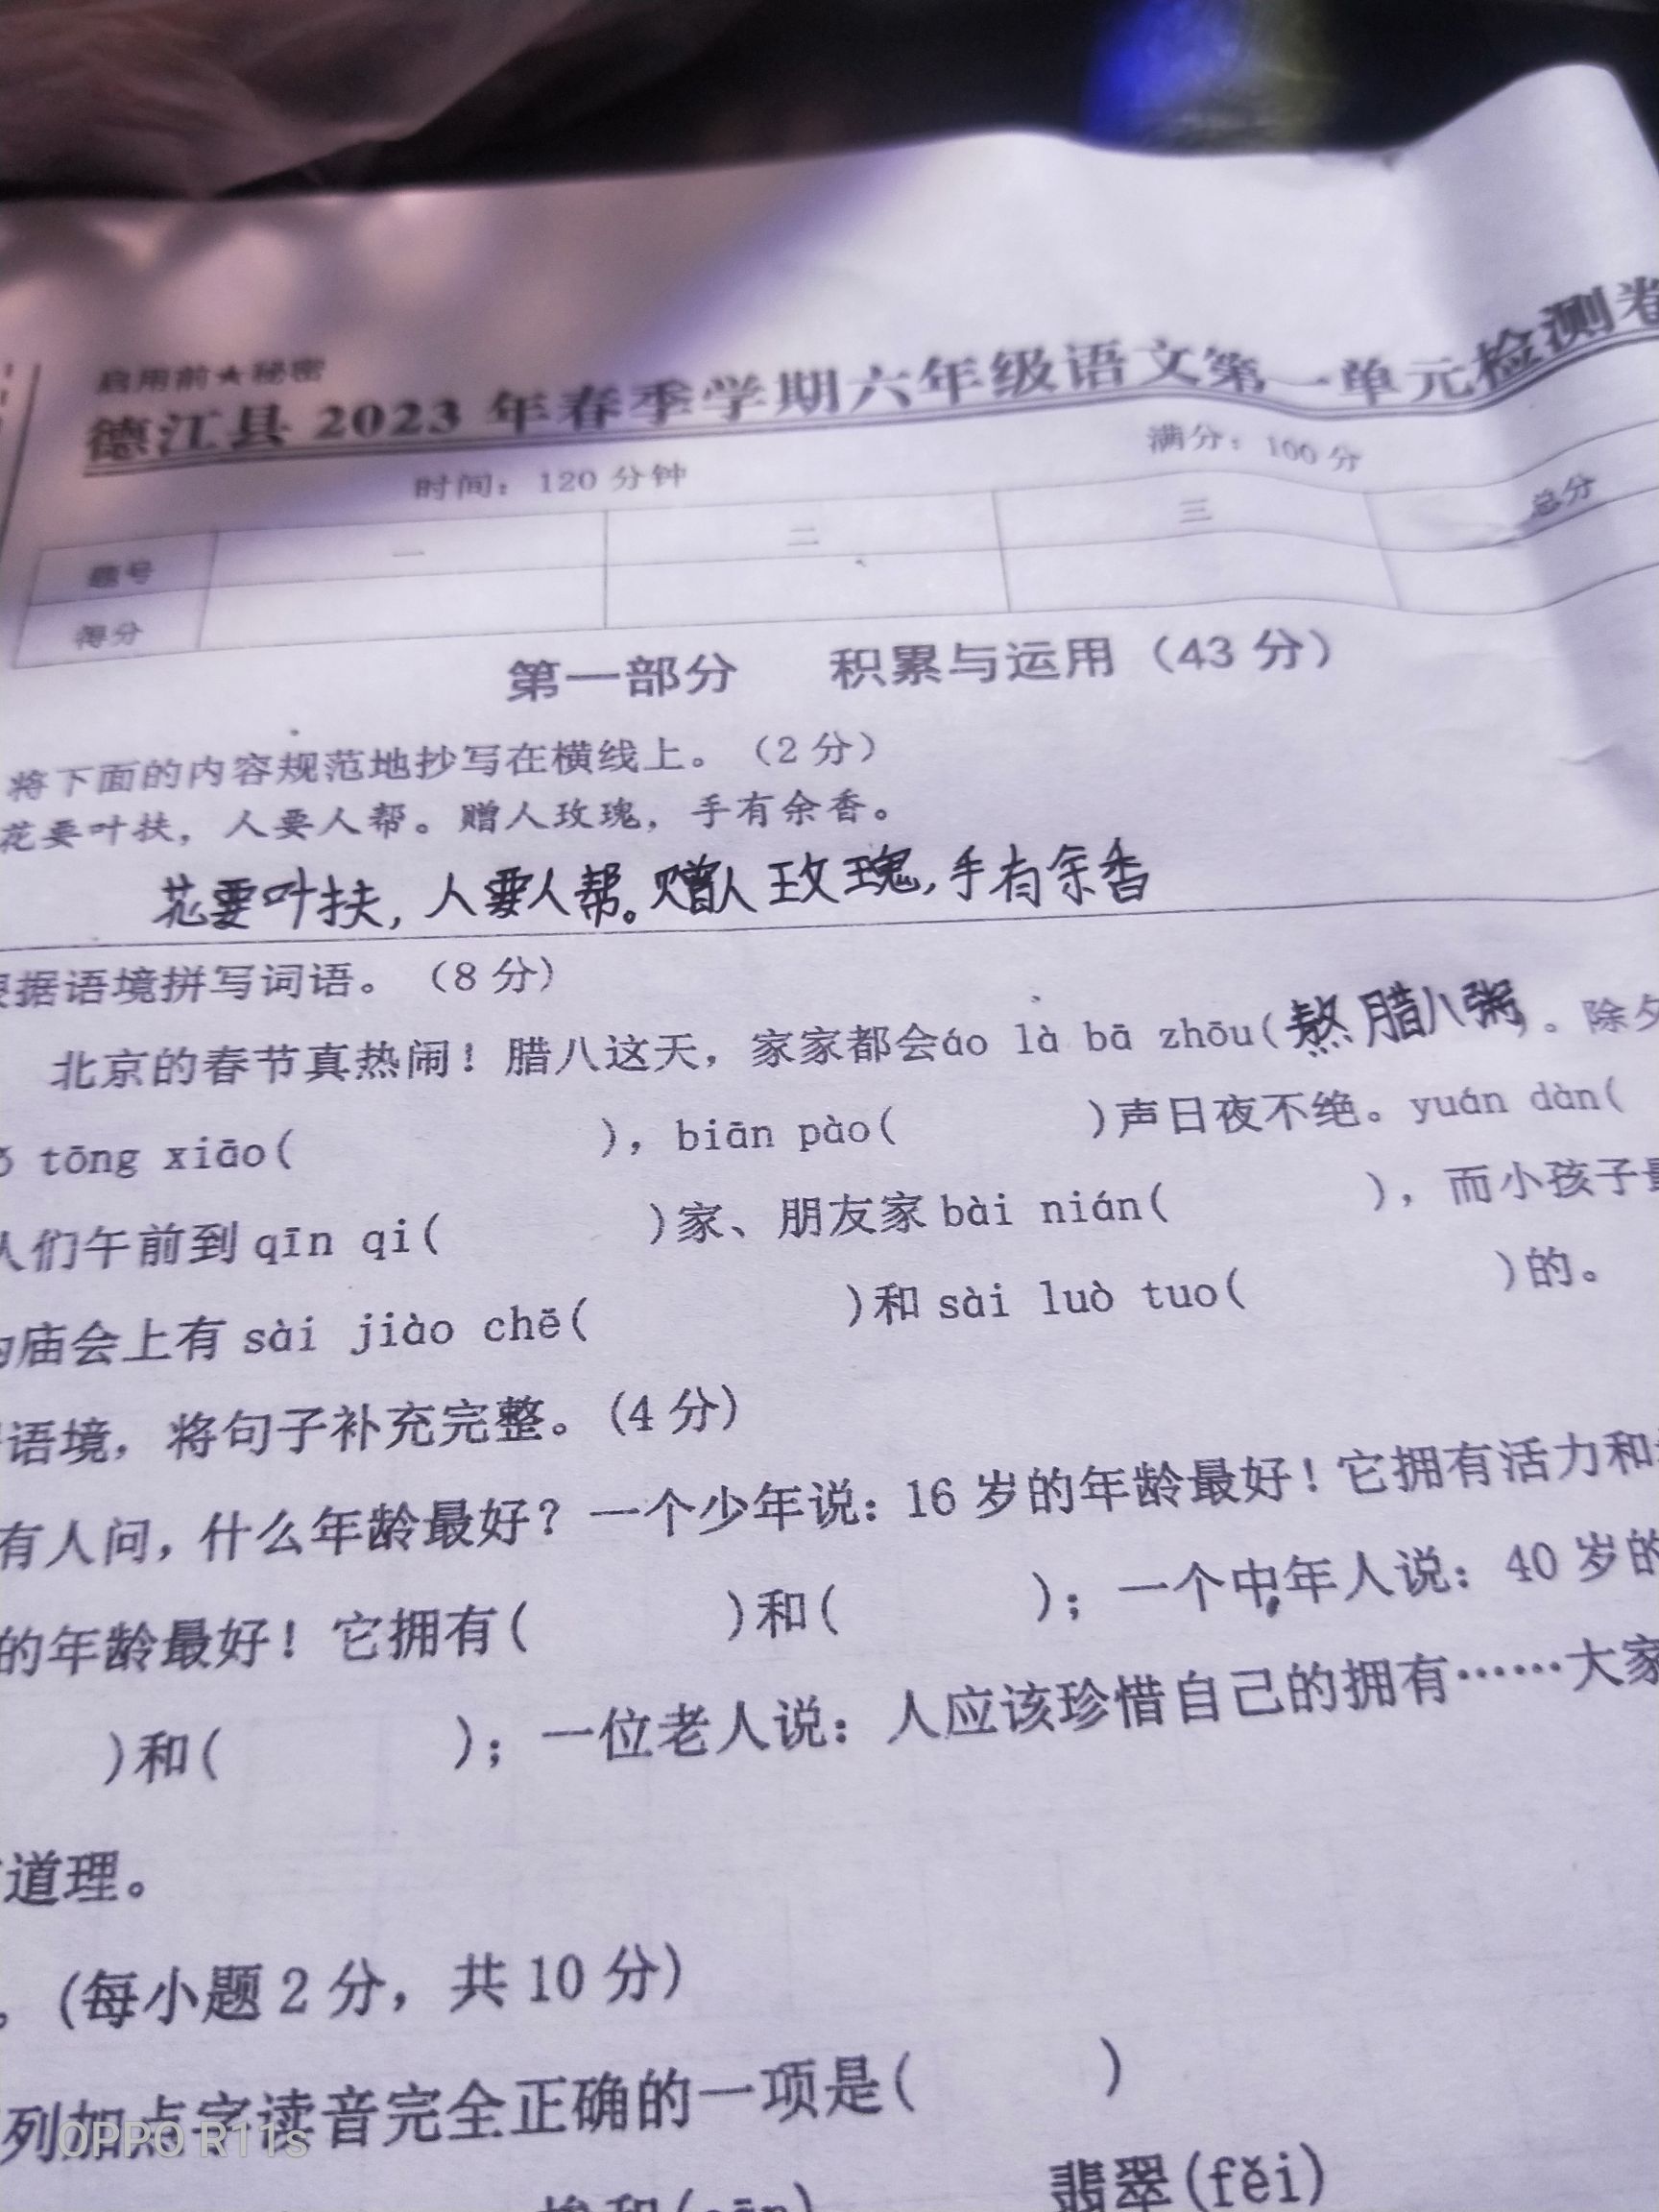 启用前★秘密
德江县 2023 年春季学期六年级语文第一单元检测卷
时间：120 分钟 满分：100 分
题号 一 二 三 总分
得分
第一部分 积累与运用（43 分）
将下面的内容规范地抄写在横线上。（2 分）
花要叶扶，人要人帮。赠人玫瑰，手有余香。
花要叶扶，人要人帮。赠人玫瑰，手有余香
据语境拼写词语。（8 分）
北京的春节真热闹！腊八这天，家家都会áo là bā zhōu(熬腊八粥)。除夕
tōng xiāo( )，biān pào( )声日夜不绝。yuán dàn(
人们午前到 qīn qi( )家、朋友家 bài nián( )，而小孩子最
庙会上有 sài jiào chē( )和 sài luò tuo( )的。
语境，将句子补充完整。(4 分)
有人问，什么年龄最好？一个少年说：16 岁的年龄最好！它拥有活力和
的年龄最好！它拥有( )和( )；一个中年人说：40 岁的
)和( )；一位老人说：人应该珍惜自己的拥有……大家
道理。
。(每小题 2 分，共 10 分)
列加点字读音完全正确的一项是( )
翡翠(fěi)
OPPO R11s